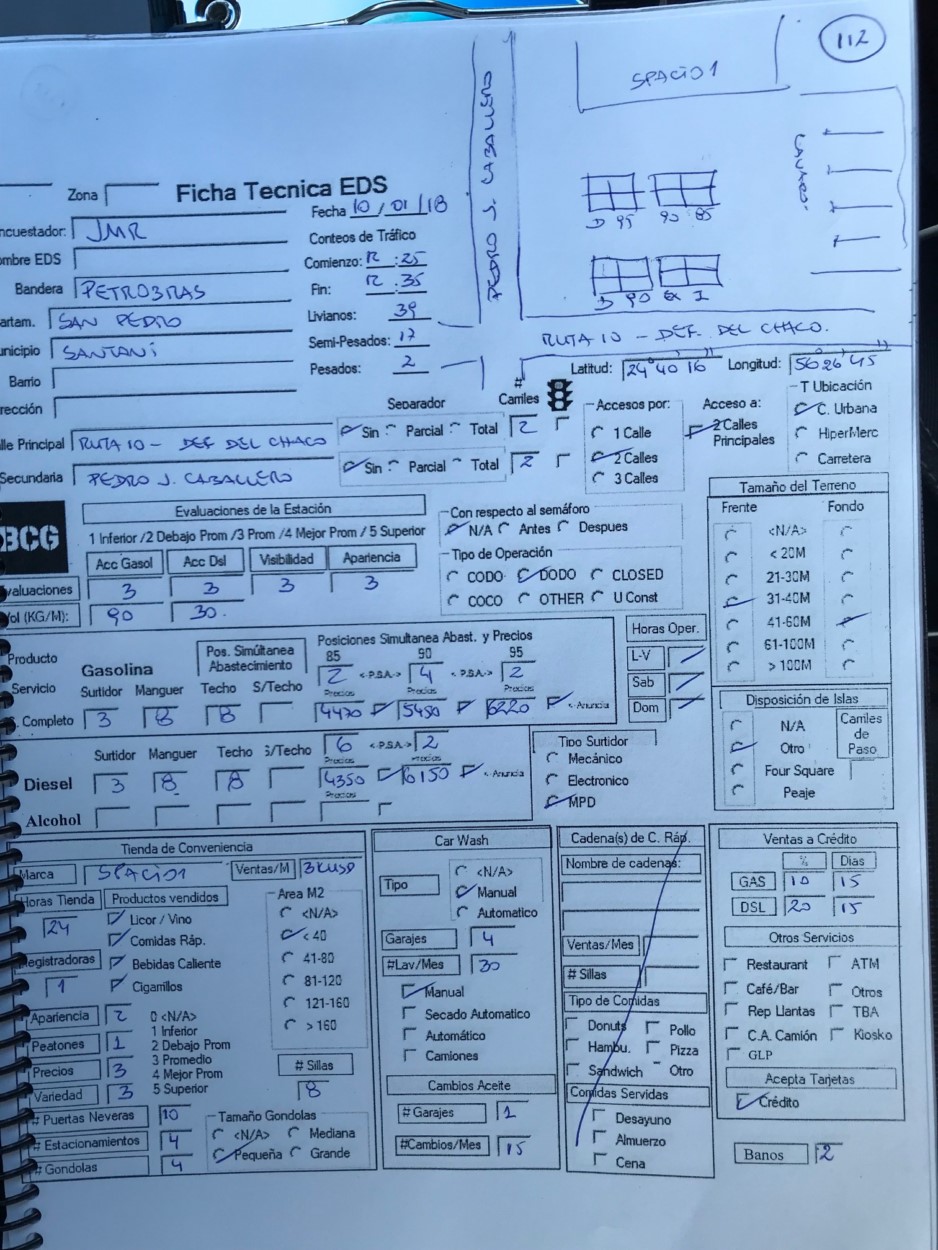 112
SPACIO 1
PEDRO J. CABALLERO
LAVADO.
D 95 90 85
D 90 Ex I
RUTA 10 - DEF. DEL CHACO.
Zona
Ficha Tecnica EDS
Fecha 10/01/18
ncuestador: JMR
Conteos de Tráfico
ombre EDS
Comienzo: 12:25
Bandera PETROBRAS
Fin: 12:35
artam. SAN PEDRO
Livianos: 39
unicipio SANTANI
Semi-Pesados: 17
Barrio
Pesados: 2
Latitud: 24°40'16" Longitud: 56°26'45"
rección
Separador # Carriles
lle Principal RUTA 10 - DEF DEL CHACO
Sin Parcial Total 2
Secundaria PEDRO J. CABALLERO
Sin Parcial Total 2
Accesos por:
1 Calle
2 Calles
3 Calles
Acceso a:
2 Calles Principales
T Ubicación
C. Urbana
HiperMerc
Carretera
BCG
Evaluaciones de la Estación
1 Inferior /2 Debajo Prom /3 Prom /4 Mejor Prom / 5 Superior
Acc Gasol Acc Dsl Visibilidad Apariencia
valuaciones 3 3 3 3
Vol (KG/M): 90 30.
Con respecto al semáforo
N/A Antes Despues
Tipo de Operación
CODO DODO CLOSED
COCO OTHER U Const
Tamaño del Terreno
Frente Fondo
<N/A>
< 20M
21-30M
31-40M
41-60M
61-100M
> 100M
Producto
Gasolina
Pos. Simúltanea Abastecimiento
Posiciones Simultanea Abast. y Precios
85 90 95
2 <-P.S.A.-> 4 <-P.S.A.-> 2
Servicio
Surtidor Manguer Techo S/Techo
Precios Precios Precios
. Completo 3 8 8 4470 5450 6220 <- Anuncia
Horas Oper.
L-V
Sab
Dom
Diesel
Surtidor Manguer Techo S/Techo
6 <-P.S.A.-> 2
Precios Precios
3 8 8 4350 6150 <- Anuncia
Precios
Alcohol
Tipo Surtidor
Mecánico
Electronico
MPD
Disposición de Islas
N/A
Otro
Four Square
Peaje
Carriles de Paso
Tienda de Conveniencia
Marca SPACIO1 Ventas/M 3KUSD
Horas Tienda 24
Productos vendidos
Licor / Vino
Comidas Ráp.
Bebidas Caliente
Cigarrillos
Registradoras 1
Area M2
<N/A>
< 40
41-80
81-120
121-160
> 160
Apariencia 2
Peatones 1
Precios 3
Variedad 3
0 <N/A>
1 Inferior
2 Debajo Prom
3 Promedio
4 Mejor Prom
5 Superior
# Sillas
8
# Puertas Neveras 10
# Estacionamientos 4
# Gondolas 4
Tamaño Gondolas
<N/A> Mediana
Pequeña Grande
Car Wash
Tipo
<N/A>
Manual
Automatico
Garajes 4
#Lav/Mes 30
Manual
Secado Automatico
Automático
Camiones
Cambios Aceite
# Garajes 1
#Cambios/Mes 15
Cadena(s) de C. Ráp.
Nombre de cadenas:
Ventas/Mes
# Sillas
Tipo de Comidas
Donuts Pollo
Hambu. Pizza
Sandwich Otro
Comidas Servidas
Desayuno
Almuerzo
Cena
Ventas a Crédito
% Dias
GAS 10 15
DSL 20 15
Otros Servicios
Restaurant ATM
Café/Bar Otros
Rep Llantas TBA
C.A. Camión Kiosko
GLP
Acepta Tarjetas
Crédito
Banos 2